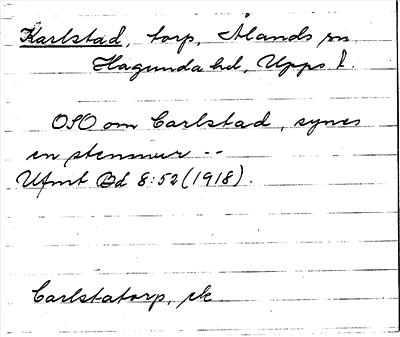 Karlstad, torp, Ålands sn
Hagunda hd, Upps l.
OSO om Carlstad, synes
en stenmur --
Ufmt Bd 8:52 (1918).
Carlstatorp, sk